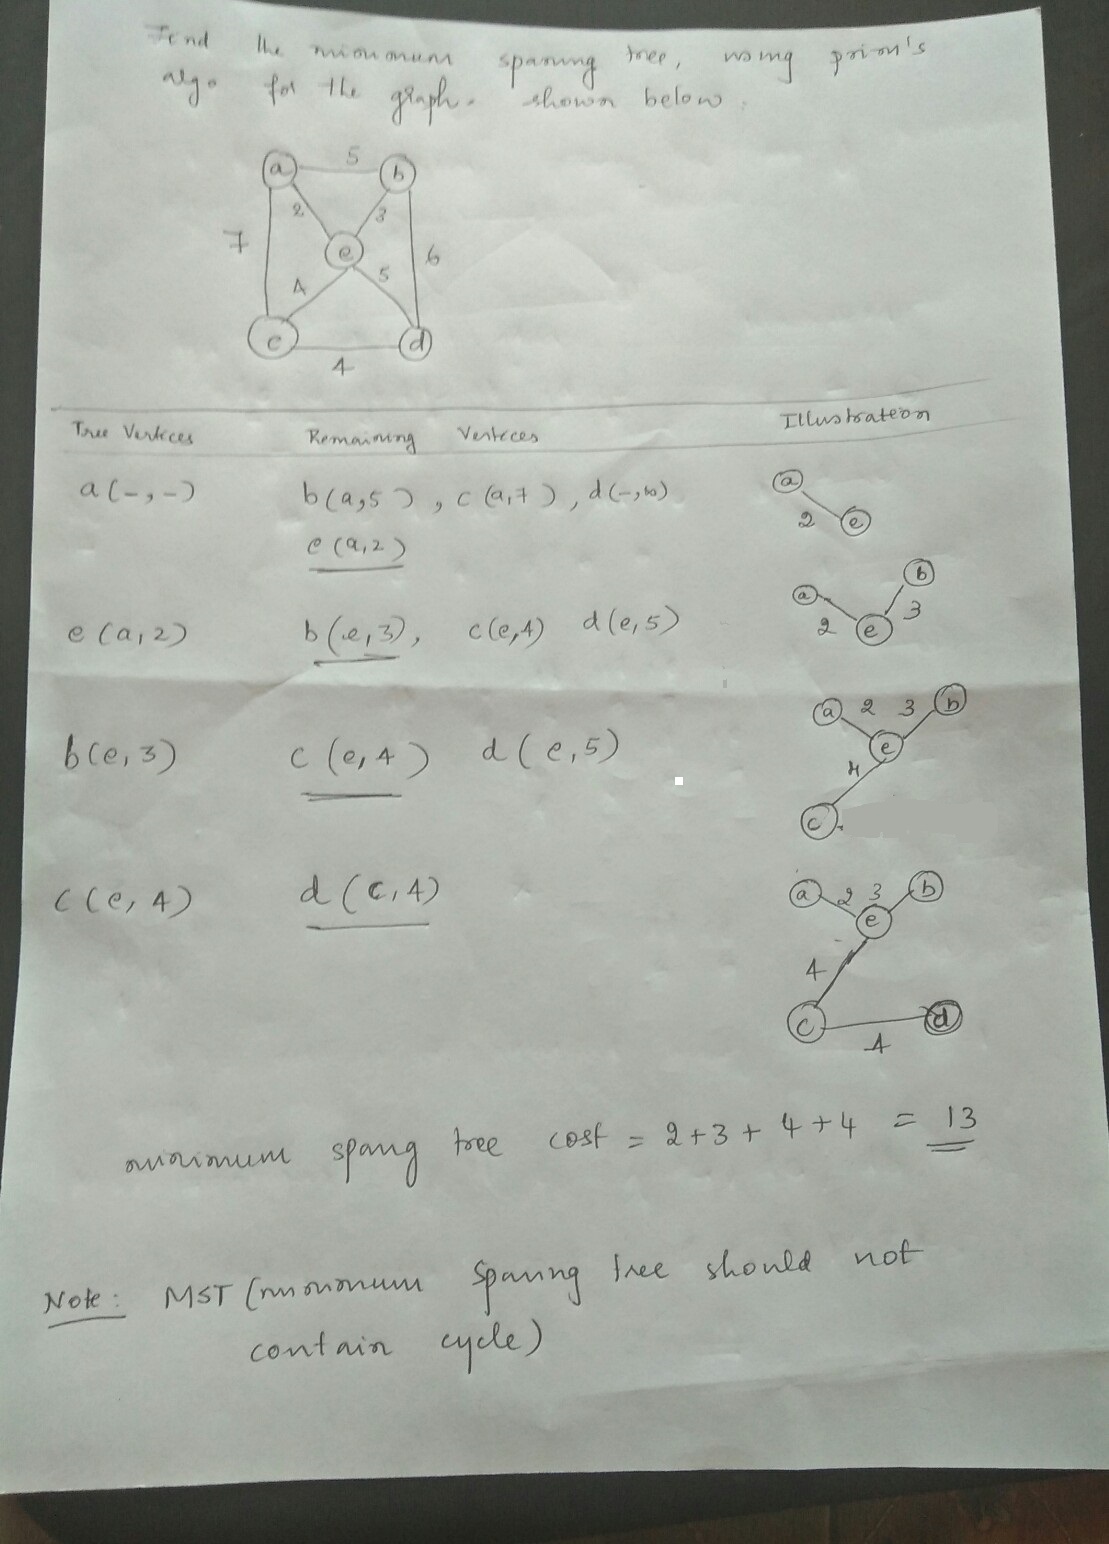 Find the minimum spaning tree, using prim's
algo for the graph. shown below.
a 5 b
2 3
7 e 6
4 5
c d
4
Tree Vertices Remaining Vertices Illustration
a(-,-) b(a,5), c(a,7), d(-,∞)
e(a,2)
a
2 e
e(a,2) b(e,3), c(e,4) d(e,5)
a b
2 e 3
b(e,3) c(e,4) d(e,5)
a 2 3 b
e
4
c
c(e,4) d(c,4)
a 2 3 b
e
4
c d
4
minimum spang tree cost = 2+3+4+4 = 13
Note: MST (minimum Spaning tree should not
contain cycle)